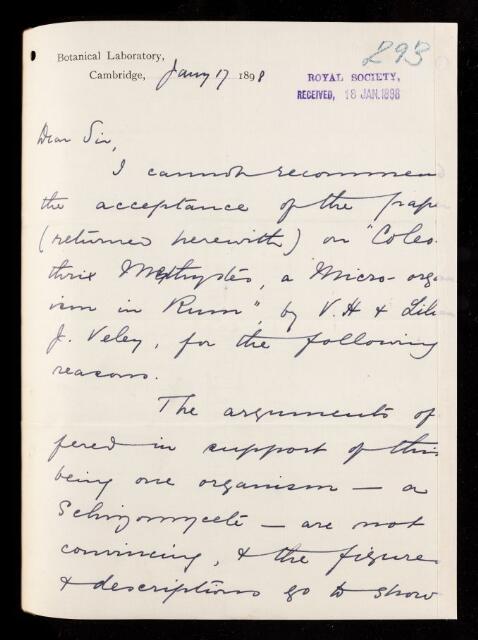 293
Botanical Laboratory,
Cambridge, Jany 17 1898
ROYAL SOCIETY,
RECEIVED, 18 JAN.1898
Dear Sir,
I cannot recommen
the acceptance of the pape
(returned herewith) on "Coleo-
thrix Methystes, a Micro-orga
ism in Rum", by V.H & Lili
J. Veley, for the following
reasons.
The arguments of
fered in support of this
being one organism — a
Schizomycete — are not
convincing, & the figures
& descriptions go to show